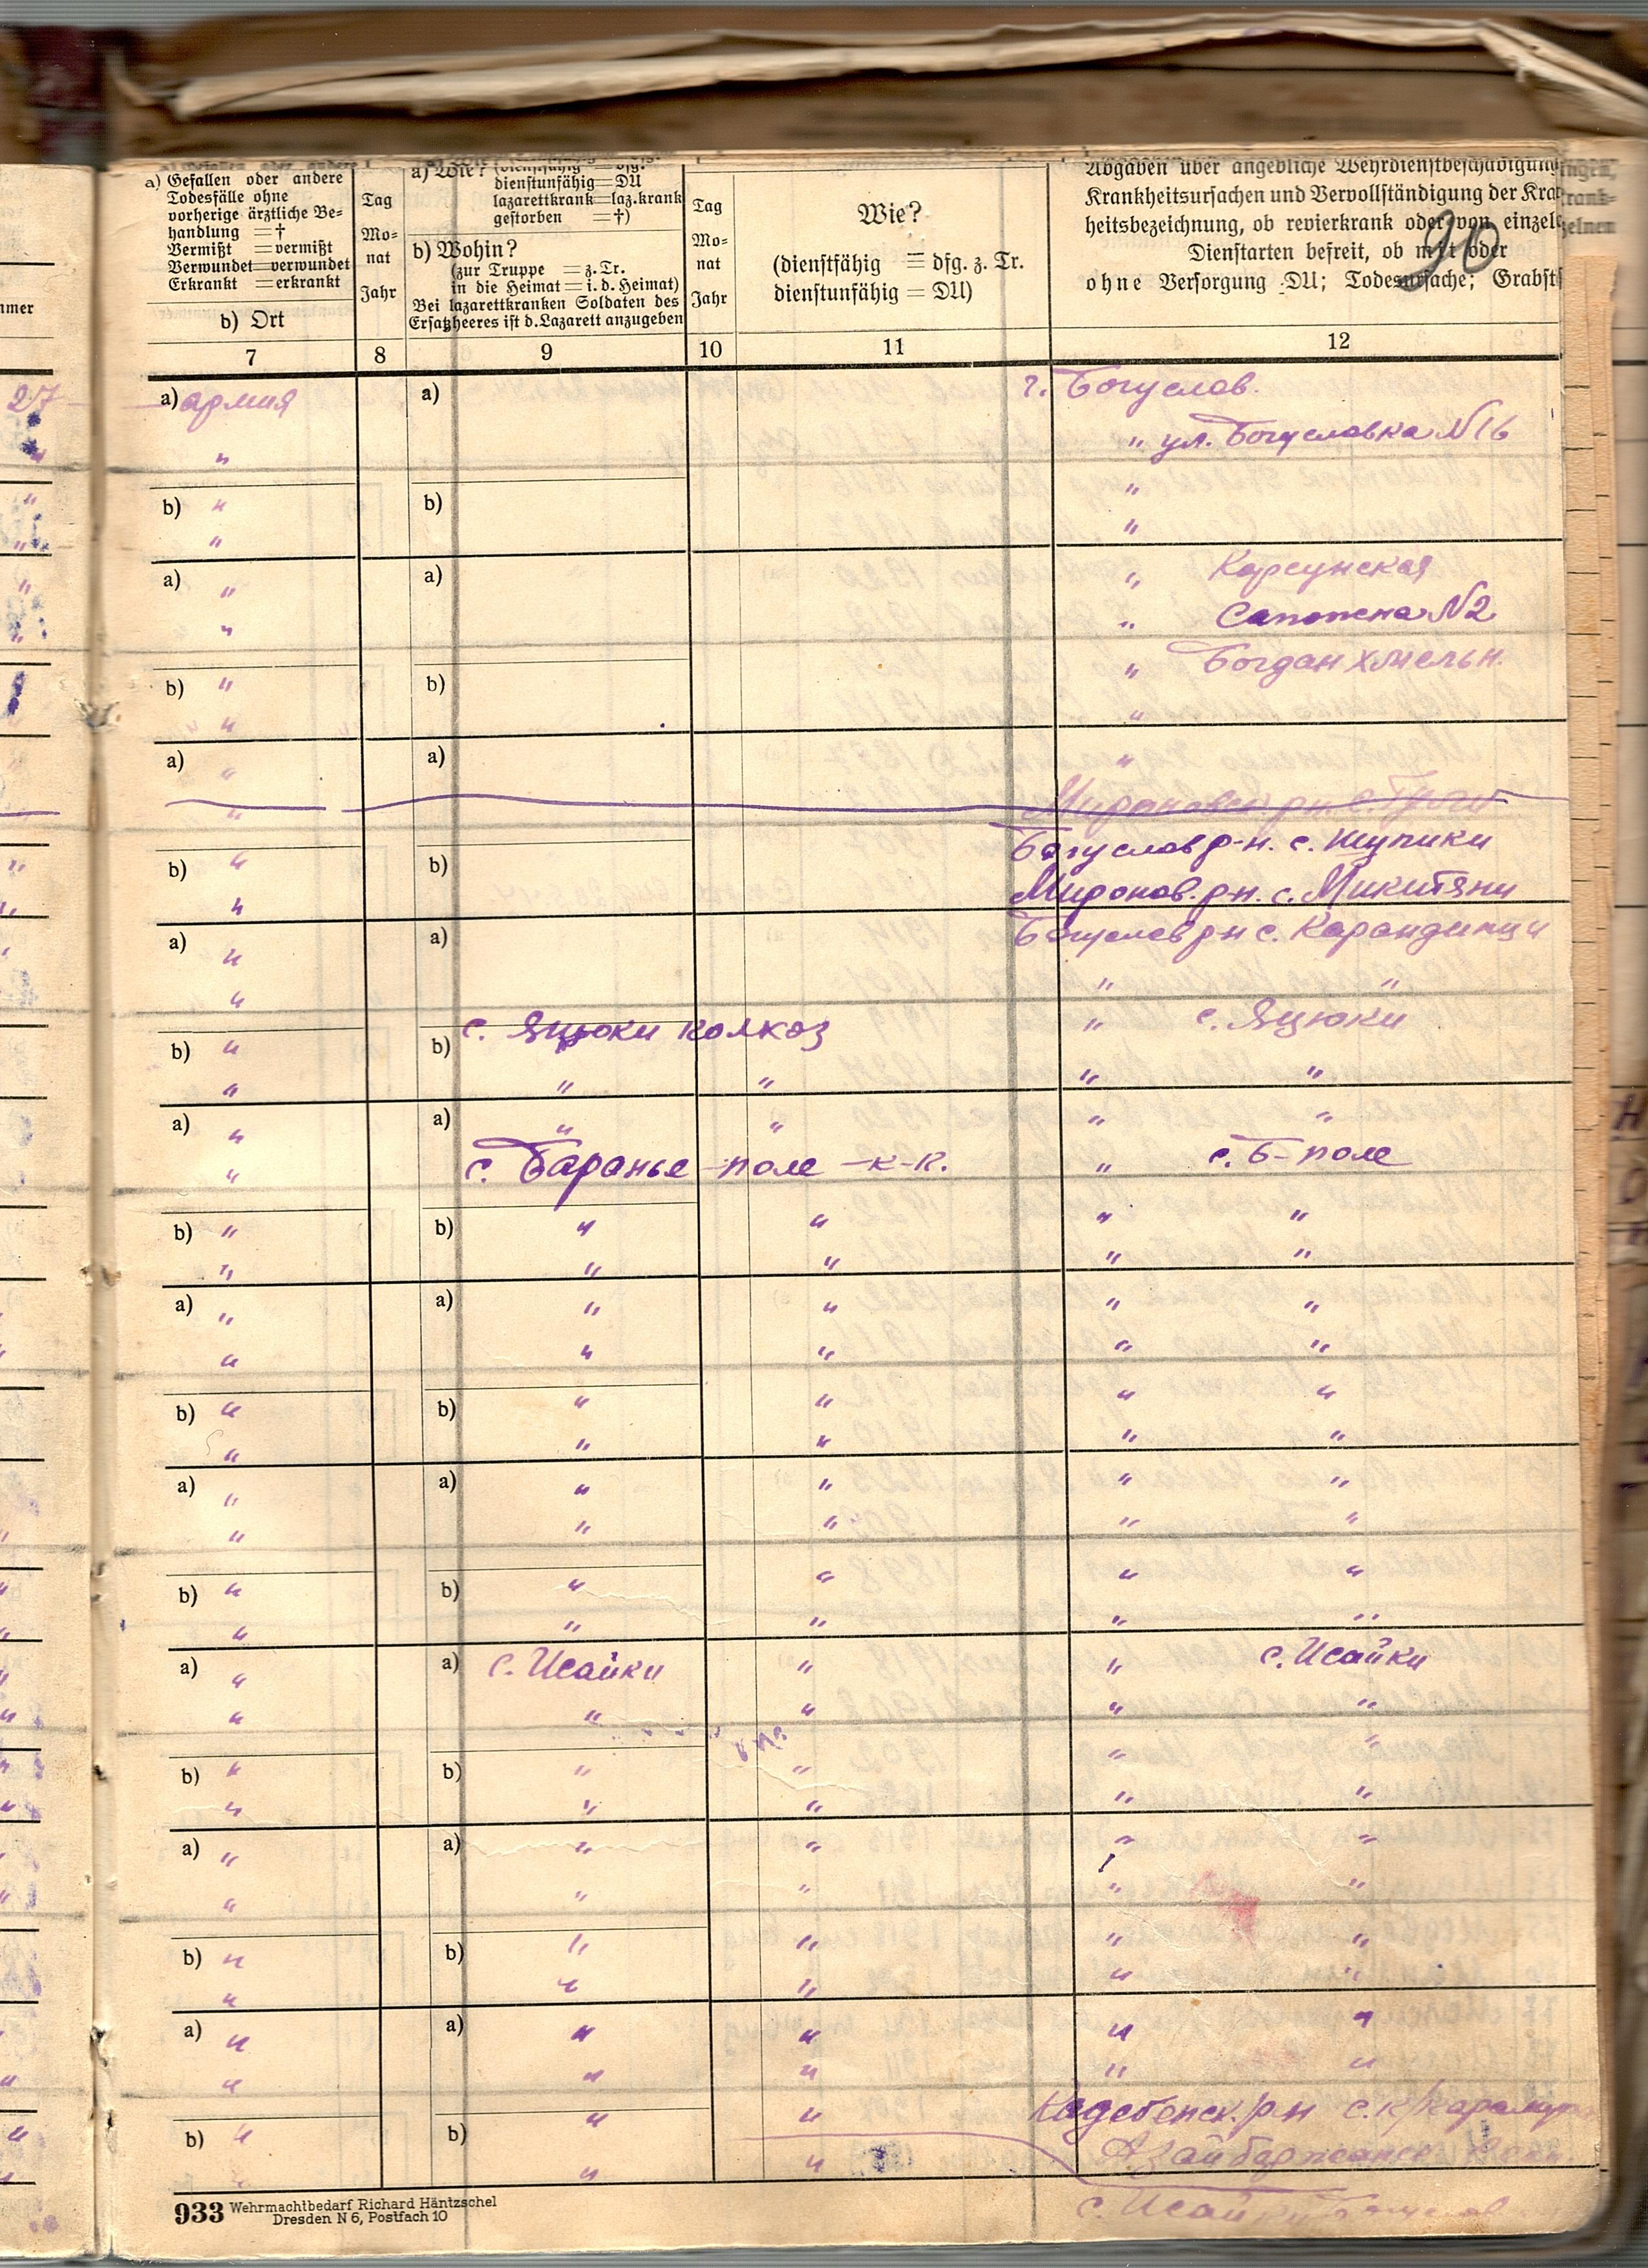 a) Gefallen oder andere
Todesfälle ohne
vorherige ärztliche Be-
handlung =†
Vermißt =vermißt
Verwundet=verwundet
Erkrankt =erkrankt
b) Ort
Tag
Mo-
nat
Jahr
a) Wie?
dienstunfähig=DU
lazarettkrank=laz.krank
gestorben =†)
b) Wohin?
(zur Truppe =z.Tr.
in die Heimat=i.d.Heimat)
Bei lazarettkranken Soldaten des
Ersatzheeres ist d.Lazarett anzugeben
Tag
Mo-
nat
Jahr
Wie?
(dienstfähig = dfg. z. Tr.
dienstunfähig = DU)
Angaben über angebliche Wehrdienstbeschädigung
Krankheitsursachen und Vervollständigung der Kra
heitsbezeichnung, ob revierkrank oder von einzel
Dienstarten befreit, ob mit oder
ohne Versorgung DU; Todesursache; Grabst
90
7 8 9 10 11 12
27 a) армия a) г. Богуслав.
" " ул. Богуславка N16
b) " b) "
" "
a) " a) " Корсунская
" " N2
b) " b) " Богдан Хмельн.
" "
a) " a) "
"
b) " b) Богуслав р-н. с. Шупики
" Миронов. р-н. с. Микитяни
a) " a) Богуслав р-н с.
" " "
b) " b) с. Яцюки колхоз " с. Яцюки
" " " " "
a) " a) " " " "
" с. Баранье-поле -к-к. " с. Б-поле
b) " b) " " " "
" " " " "
a) " a) " " " "
" " " " "
b) " b) " " " "
" " " " "
a) " a) " " " "
" " " " "
b) " b) " " " "
" " " " "
a) " a) с. Исайки " " с. Исайки
" " " "
b) " b) " " " "
" " " " "
a) " a) " " " "
" " " " "
b) " b) " " " "
" " " " "
a) " a) " " " "
" " " " "
b) " b) " " р-н
" "
933 Wehrmachtbedarf Richard Häntzschel
Dresden N 6, Postfach 10
с. Исайки